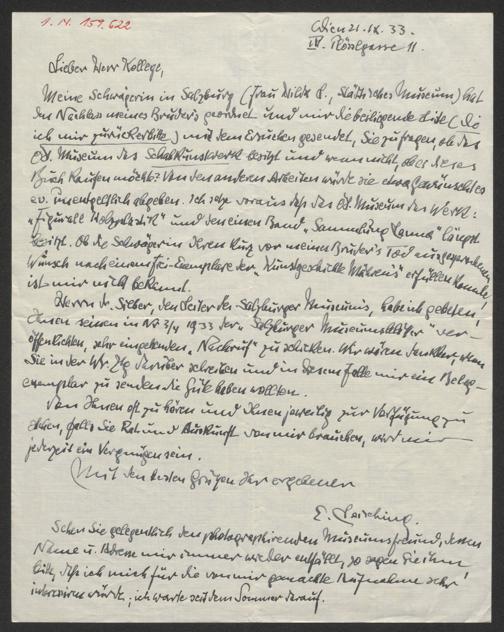 I. N. 159.622
Wien 21. IX. 33.
IV. Rösslgasse 11.
Lieber Herr Kollege,
Meine Schwägerin in Salzburg (Frau Hilda L., Städtisches Museum) hat
den Nachlass meines Bruders geordnet und mir die beiliegende Liste (die
ich mir zurückerbitte) mit dem Ersuchen gesendet, Sie zu fragen ob das
Museum das besitzt und wenn nicht, ob es dieses
Buch kaufen möchte? Von den anderen Arbeiten würde sie etwa Gewünschtes
ev. unentgeltlich abgeben. Ich setze voraus dass das Museum das Werk:
"Figurale Holzplastik" und den einen Band "Sammlung Lanna" längst
besitzt. Ob die Schwägerin Ihren kurz vor meines Bruders Tod ausgesprochenen
Wunsch nach einem frei-Exemplare der "Kunstgeschichte Mährens" erfüllen konnte,
ist mir nicht bekannt.
Herrn Dr. Sieber, den Leiter des Salzburger Museums, habe ich gebeten,
Ihnen seinen in Nr 3/4 1933 der "Salzburger Museumsblätter" ver-
öffentlichten, sehr eingehenden "Nachruf" zu schicken. Wir wären dankbar, wenn
Sie in der Wr. Ztg darüber schreiben und in diesem Falle mir ein Beleg-
exemplar zu senden die Güte haben wollten.
Von Ihnen oft zu hören und Ihnen jeweilig zur Verfügung zu
stehen, falls Sie Rat und Auskunft von mir brauchen, wird mir
jederzeit ein Vergnügen sein.
Mit den besten Grüßen Ihr ergebener
E. Leisching.
Sehen Sie gelegentlich den photographirenden Museumsfreund, dessen
Name u. Adresse mir immer wieder entfällt, so sagen Sie ihm
bitte, dass ich mich für die von mir gemachte Aufnahme sehr
interessieren würde; ich warte seit dem Sommer darauf.